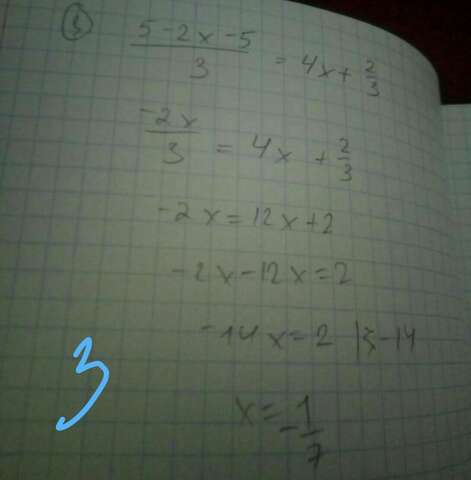 ③ (5-2x-5)/3 = 4x + 2/3
-2x/3 = 4x + 2/3
-2x = 12x + 2
-2x - 12x = 2
-14x = 2 |: -14
x = -1/7
3